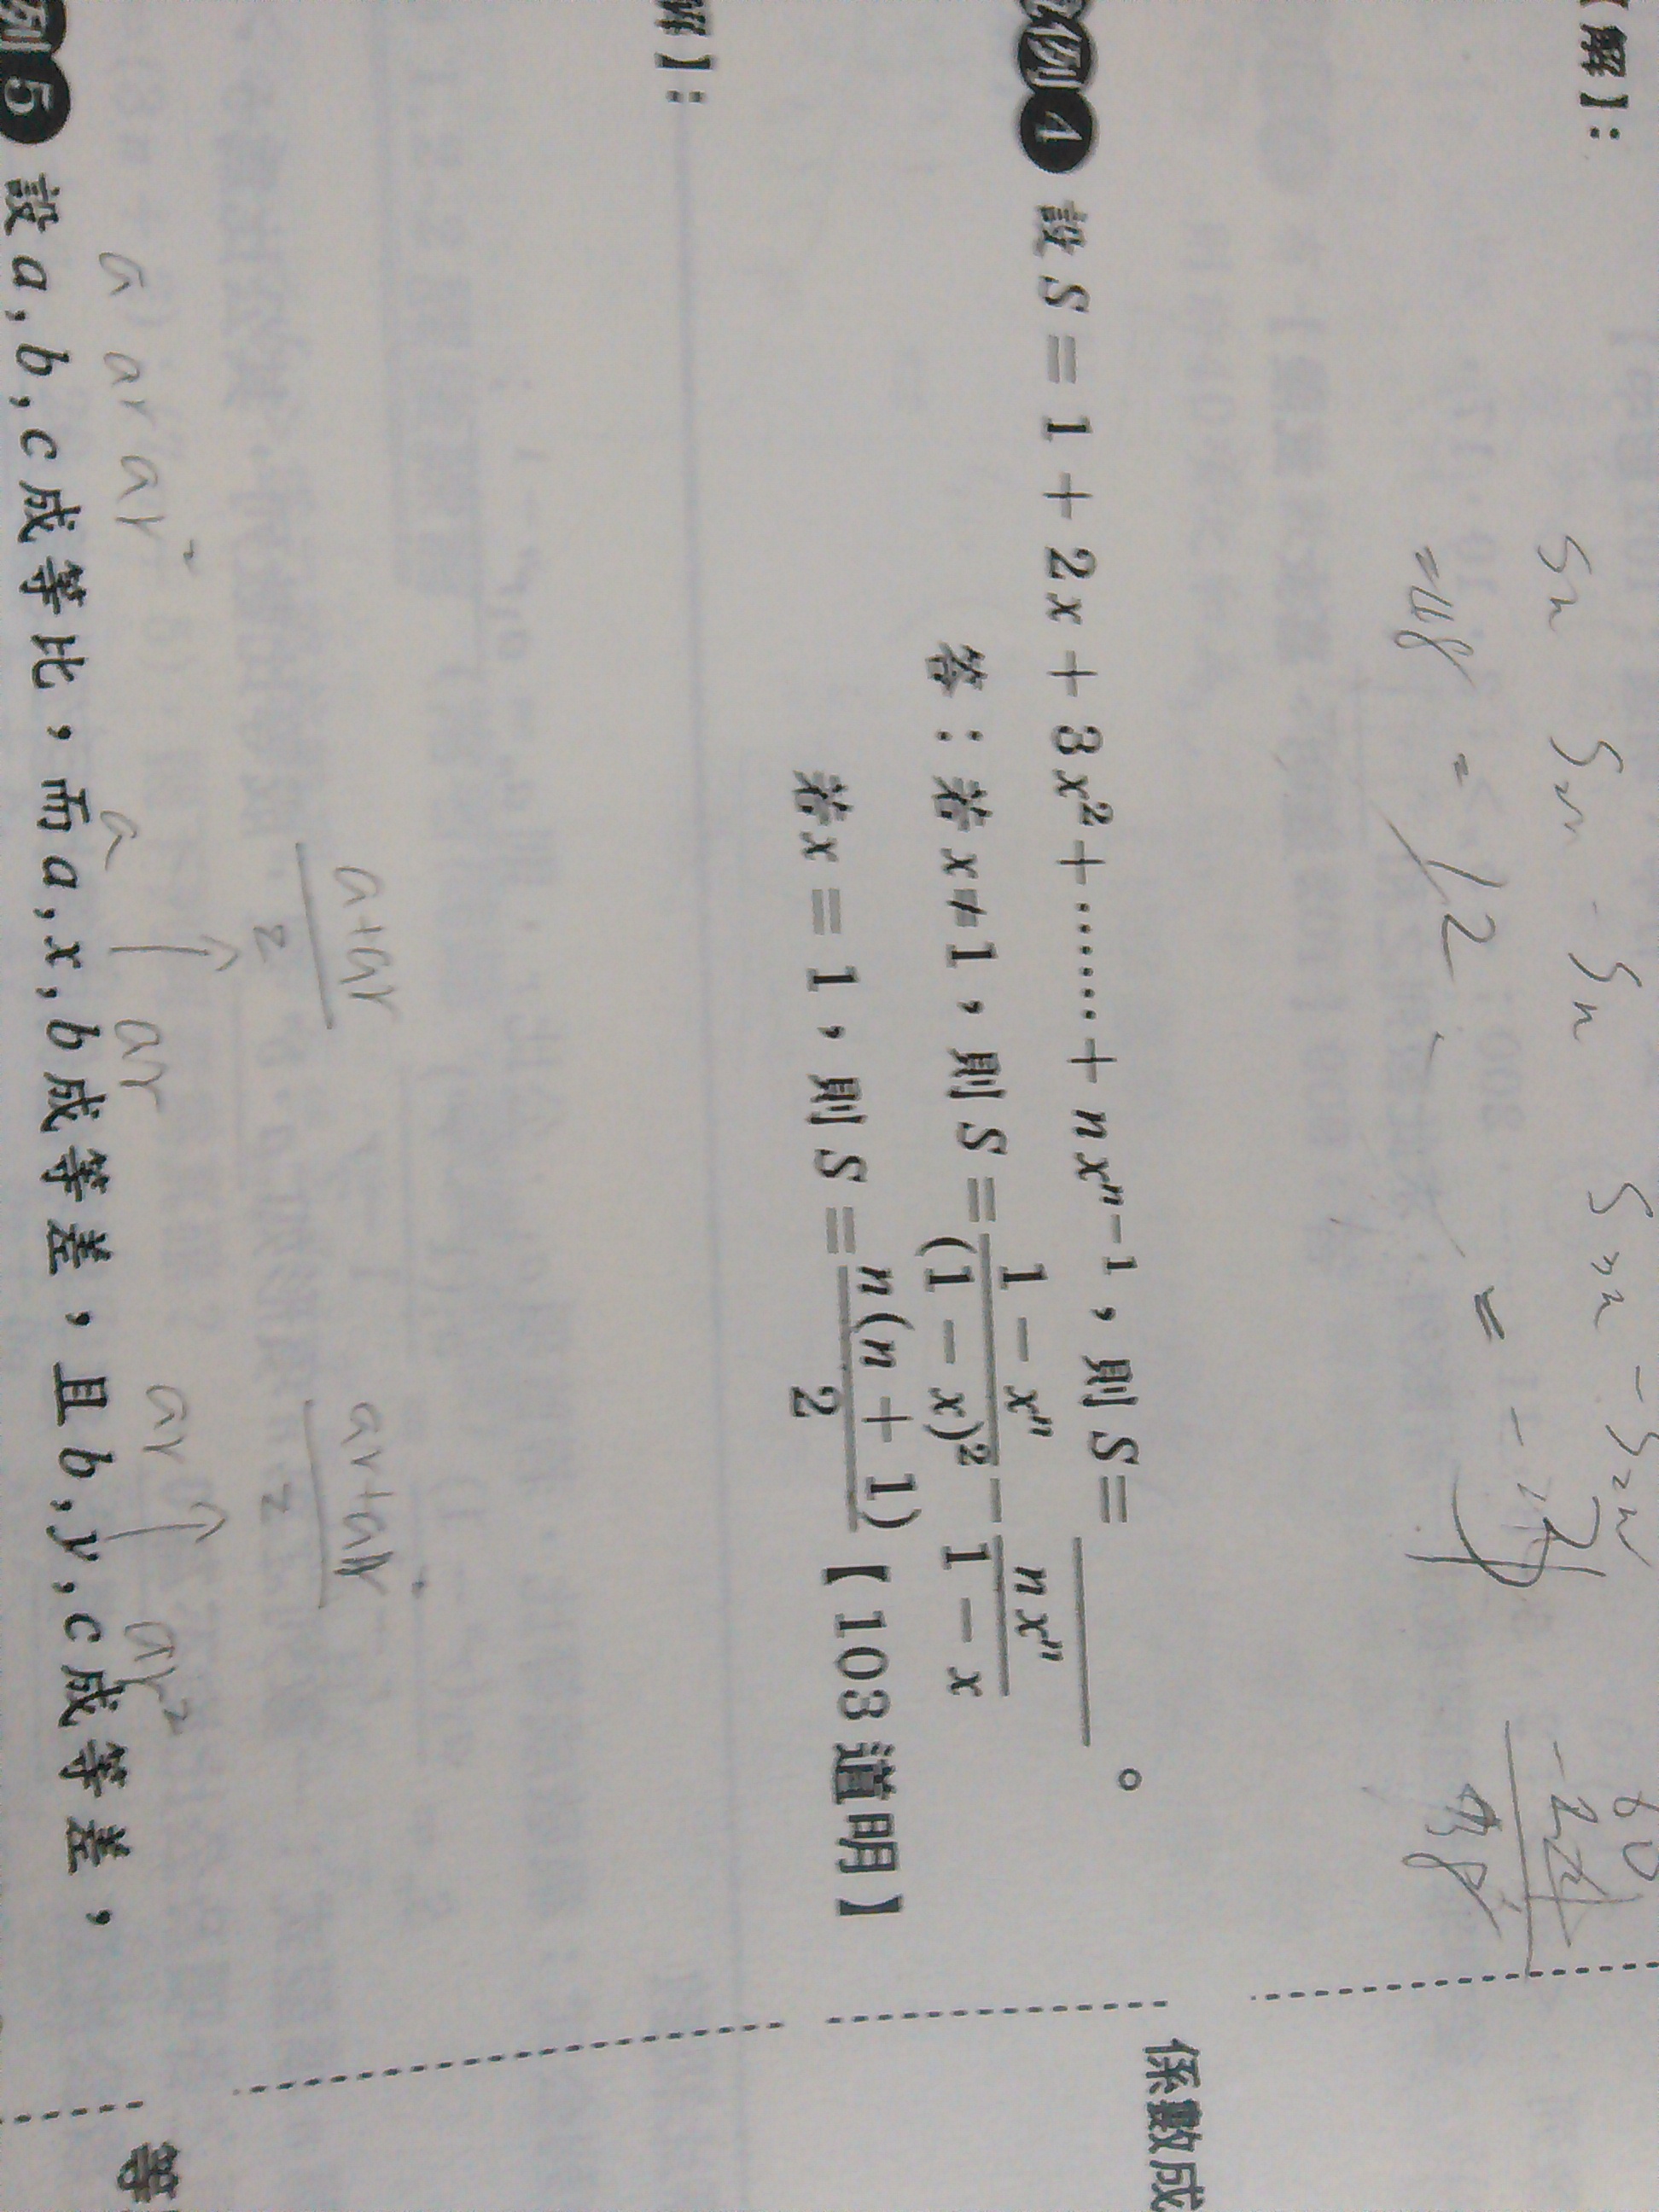 解】：
Sn S2n - Sn S3n - S2n
60
=48 = 12 = 3
48
例4 設 S = 1 + 2x + 3x² + …… + nxⁿ⁻¹，則 S = ______。
係數成
答：若 x ≠ 1，則 S = (1 - xⁿ)/(1 - x)² - nxⁿ/(1 - x)
若 x = 1，則 S = n(n + 1)/2【103 道明】
解】：
(a+ar)/2 (ar+ar²)/2
a ar ar² a ar ar ar²
例5 設 a , b , c 成等比，而 a , x , b 成等差，且 b , y , c 成等差，
等